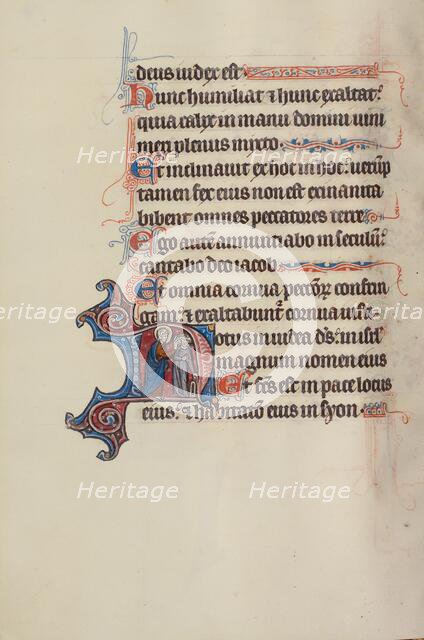 deus iudex est.
Hunc humiliat ⁊ hunc exaltat:
quia calix in manu domini uini
meri plenus mixto.
Et inclinauit ex hoc in hoc: uerūp
tamen fex eius non est exinanita
bibent omnes peccatores terre
Ego autē annuntiabo in seculū:
cantabo deo iacob.
Et omnia cornua pccōꝝ confrin
gam: ⁊ exaltabunt᷑ cornua iusti.
Notus in iudea ds: in isrl
magnum nomen eius
Et fcūs est in pace locus
eius: ⁊ habitatō eius in syon.
Heritage
Heritage
Heritage
Heritage
Heritage
Heritage